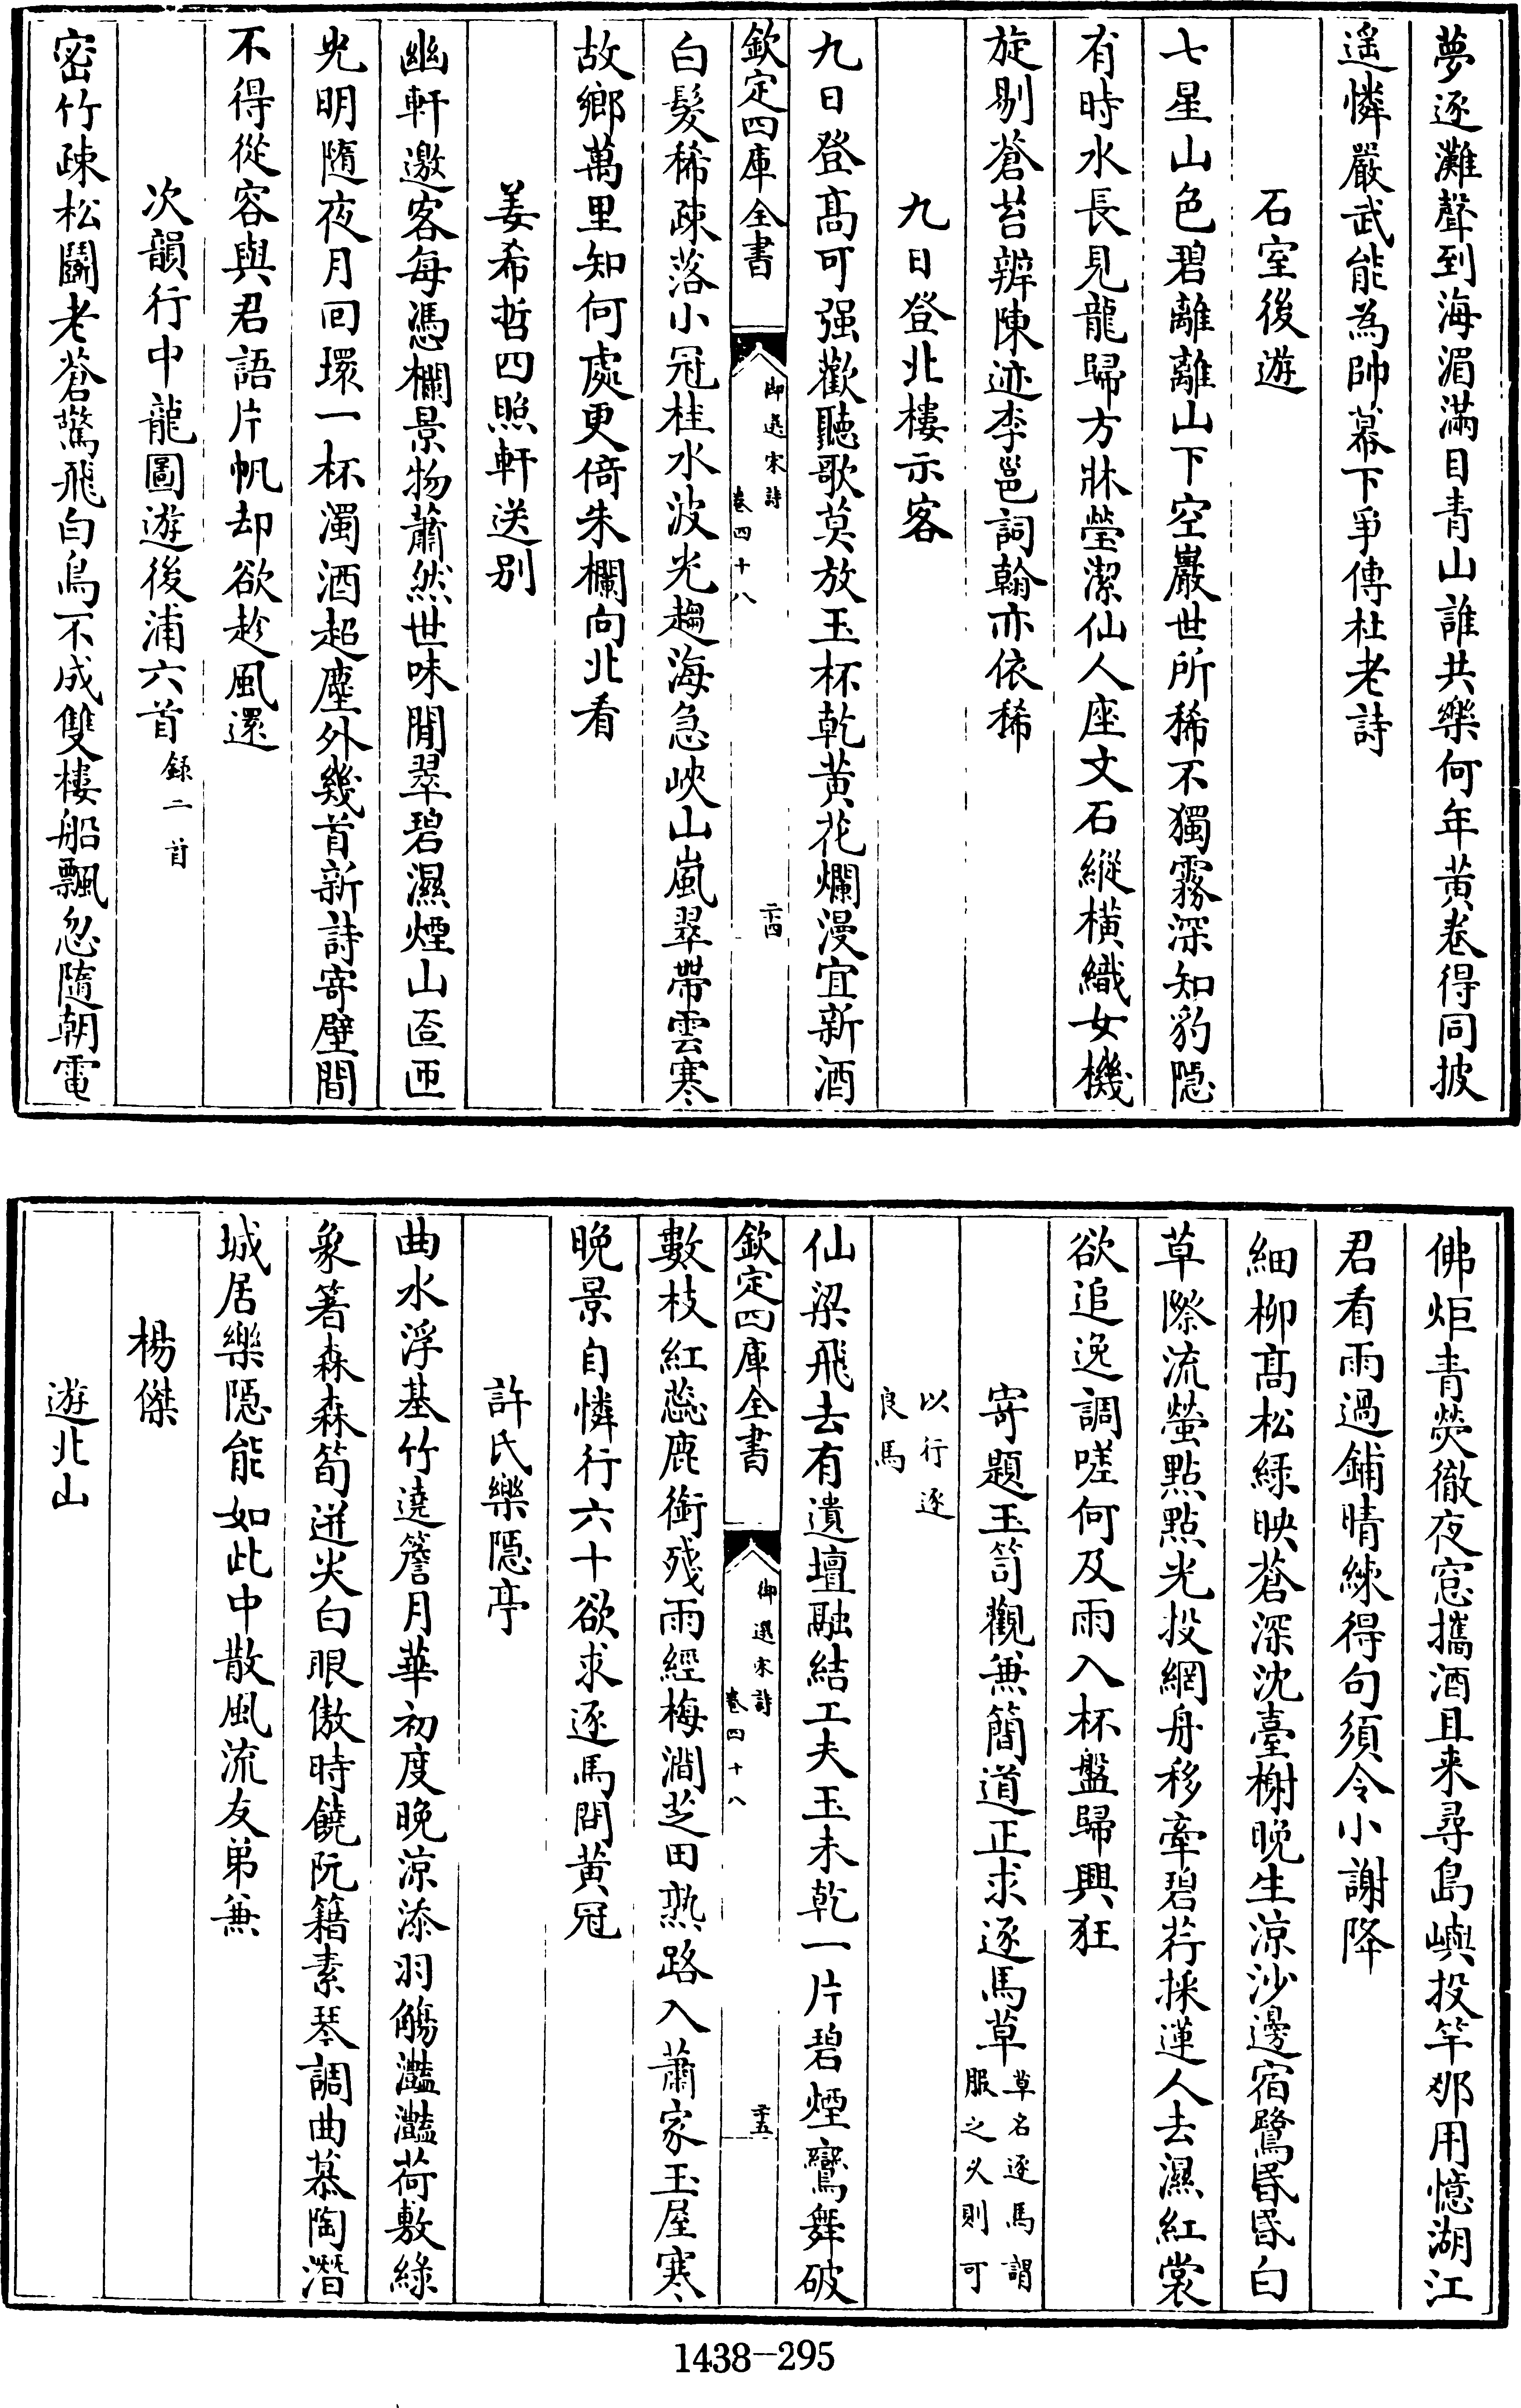 夢逐灘聲到海湄滿目青山誰共樂何年黃卷得同披
遥憐嚴武能為帥幕下爭傳杜老詩
石室後遊
七星山色碧離離山下空巖世所稀不獨霧深知豹隠
有時水長見龍歸方牀瑩潔仙人座文石縱橫織女機
旋剔蒼苔辨陳迹李邕詞翰亦依稀
九日登北樓示客
九日登髙可强歡聽歌莫放玉杯乾黃花爛漫宜新酒
欽定四庫全書
御選宋詩
卷四十八
二十四
白髮稀疎落小冠桂水波光趨海急峽山嵐翠帶雲寒
故鄉萬里知何處更倚朱欄向北看
姜希哲四照軒送别
幽軒邀客每憑欄景物蕭然世味閒翠碧濕煙山匼匝
光明隨夜月囘環一杯濁酒超塵外幾首新詩寄壁間
不得從容與君語片帆却欲趁風還
次韻行中龍圖遊後浦六首錄二首
密竹疎松鬭老蒼驚飛白鳥不成雙樓船飄忽隨朝電
佛炬青熒徹夜窓攜酒且来尋島嶼投竿那用憶湖江
君看雨過鋪晴練得句須令小謝降
細柳髙松綠映蒼深沈臺榭晚生涼沙邊宿鷺昬昬白
草際流螢點點光投網舟移牽碧荇採蓮人去濕紅裳
欲追逸調嗟何及雨入杯盤歸興狂
寄題玉笥觀兼簡道正求逐馬草草名逐馬謂服之必則可
以行逐良馬
仙梁飛去有遺壇融結工夫玉未乾一片碧煙鸞舞破
欽定四庫全書
御選宋詩
卷四十八
二十五
數枝紅蕊鹿銜殘雨經梅澗芝田熟路入蕭家玉屋寒
晚景自憐行六十欲求逐馬問黃冠
許氏樂隠亭
曲水浮基竹遶簷月華初度晚涼添羽觴灔灔荷敷綠
象箸森森筍迸尖白眼傲時饒阮籍素琴調曲慕陶潛
城居樂隠能如此中散風流友弟兼
楊傑
遊北山
1438-295